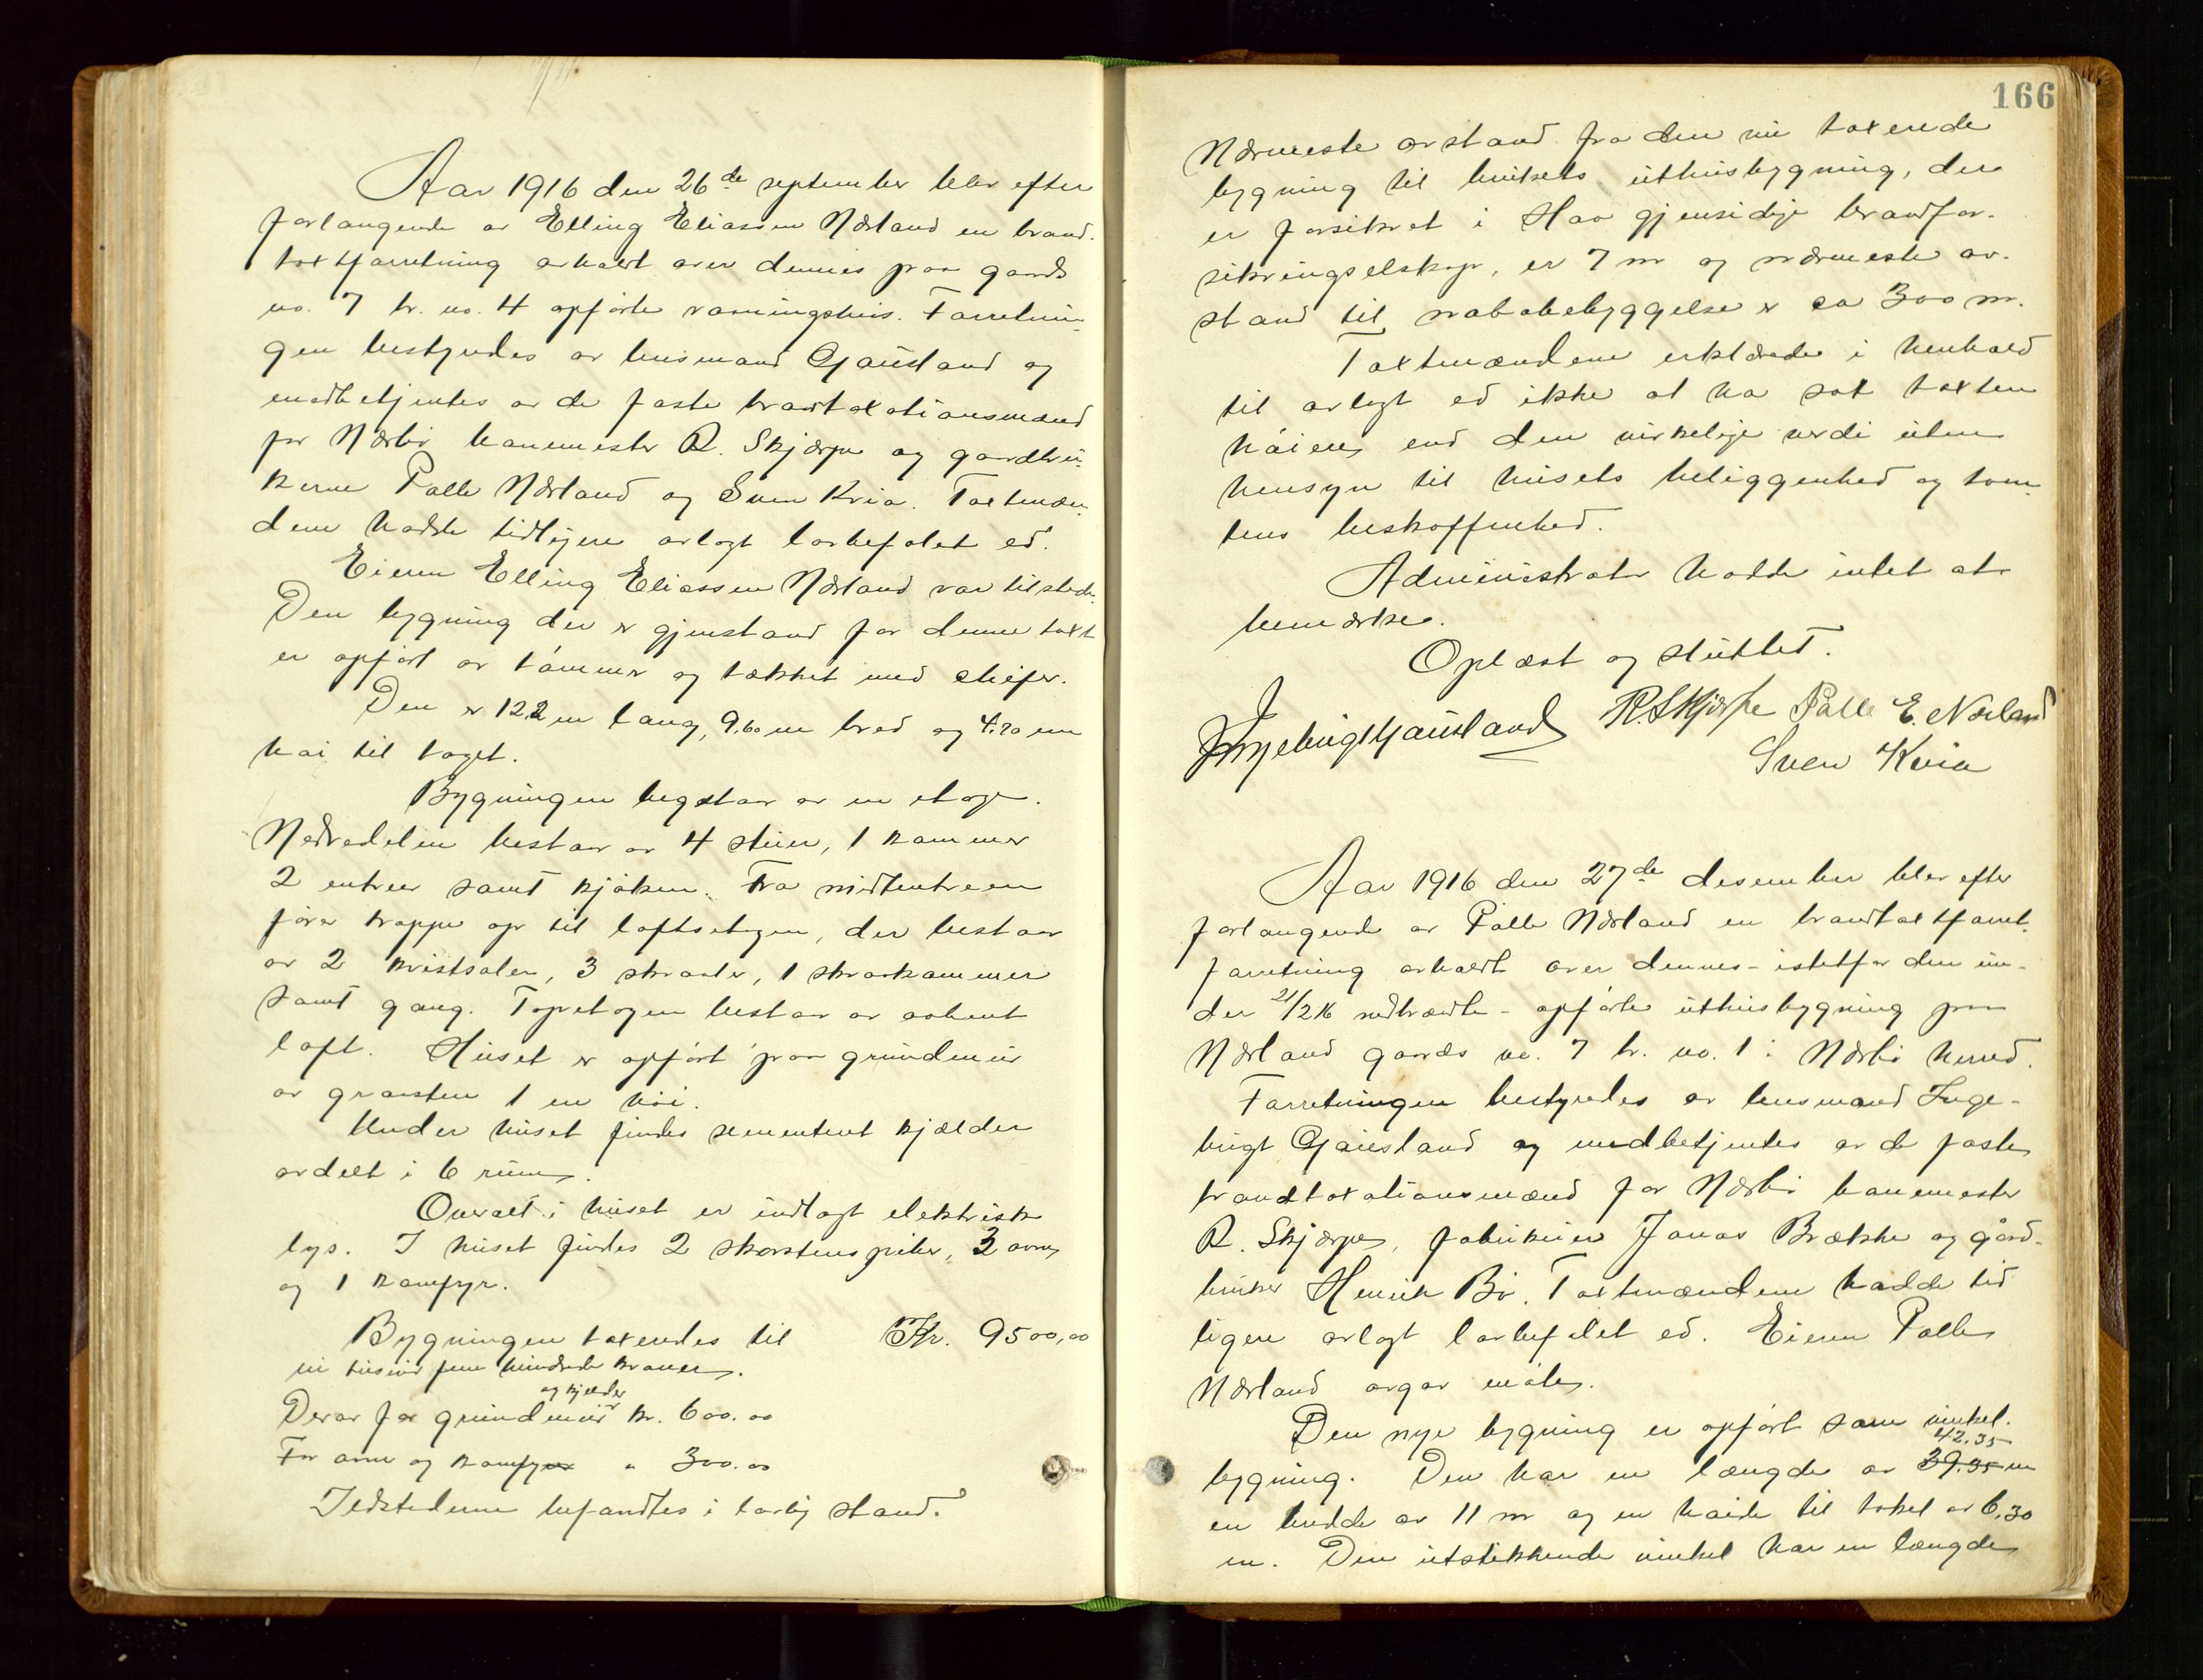 Aar 1916 den 26de september blev efter
forlangende av Elling Eliassen Nærland en brand-
taxtforretning avholdt over dennes paa gaards
no. 7 br. no. 4 opførte vaaningshus. Forretnin-
gen bestyredes av lensmand Gausland og
medbetjentes av de faste brandtaxationsmænd
for Nærbø kanemester R. Skjærpe og gaardbru-
kerne Palle Nærland og Sven Kvia. Taxtmæn-
dene hadde tidligere avlagt lovbefalet ed.
Eieren Elling Eliassen Nærland var tilstede.
Den bygning der er gjenstand for denne taxt
er opført av tømmer og tækket med skifer.
Den er 12 m lang, 9.60 m bred og 4.20 m
høi til taget.
Bygningen bestaar av en etage.
Nedredelen bestaar av 4 stuer, 1 kammer
2 entreer samt kjøkken. Fra midtentreen
fører trappe op til loftsetagen, der bestaar
av 2 kvistsaler, 3 skraaler, 1 skraakammer
samt gang. Topetagen bestaar av aabent
loft. Huset er opført paa grundmur
av graasten 1 m høi.
Under huset findes sementeret kjælder
avdelt i 6 rum.
Overalt i huset er indlagt elektrisk
lys. I huset findes 2 skorstenspiber, 3 ovne
og 1 komfyr.
Bygningen taxeredes til Kr. 9500,00
ni tusind fem hundrede kroner.
og kjælder
Derav for grundmur kr. 600.00
For ovne og komfyr " 300.00
Ildstederne befandtes i lovlig stand.
166
Nærmeste avstand fra den nu taxerede
bygning til brukets uthusbygning, der
er forsikret i Haa gjensidige brandfor-
sikringselskap, er 7 m og nærmeste av-
stand til nabobebyggelse er ca 300 m.
Taxtmændene erklærede i henhold
til avlagt ed ikke at ha sat taxten
høiere end den virkelige verdi uten
hensyn til husets beliggenhed og tom-
tens beskaffenhed.
Administrator hadde intet at
bemærke.
Oplæst og sluttet.
Ingebrigt Gausland R. Skjærpe Palle E. Nærland
Sven Kvia
Aar 1916 den 27de desember blev efter
forlangende av Palle Nærland en brandtaxtforret-
forretning avholdt over dennes - istetfor den un-
der 21/2 16 nedbrændte - opførte uthusbygning paa
Nærland gaards no. 7 br. no. 1 i Nærbø herred.
Forretningen bestyredes av lensmand Inge-
brigt Gausland og medbetjentes av de faste
brandtaxationsmænd for Nærbø kanemester
R. Skjærpe, fabrikeier Jonas Brække og gård-
bruker Henrik Bø. Taxtmændene hadde tid
ligere avlagt lovbefalet ed. Eieren Palle
Nærland avgav møte.
Den nye bygning er opført som vinkel-
42.35
bygning. Den har en længde av 39.35 m
en bredde av 11 m og en høide til taket av 6.30
m. Den utstikkende vinkel har en længde